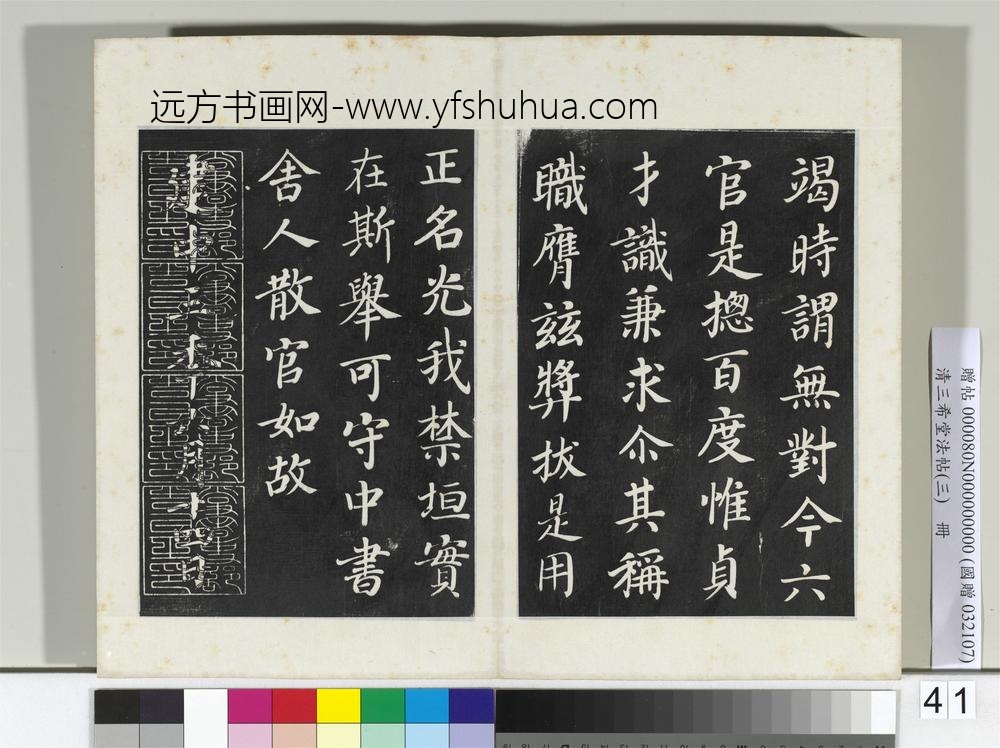 远方书画网-www.yfshuhua.com
竭時謂無對今六
官是揔百度惟貞
才識兼求尒其稱
職膺玆奬拔是用
正名光我禁垣實
在斯舉可守中書
舍人散官如故
建中元年八月廿四日
贈帖 000080N000000000 (國贈 032107)
清三希堂法帖(三) 冊
41